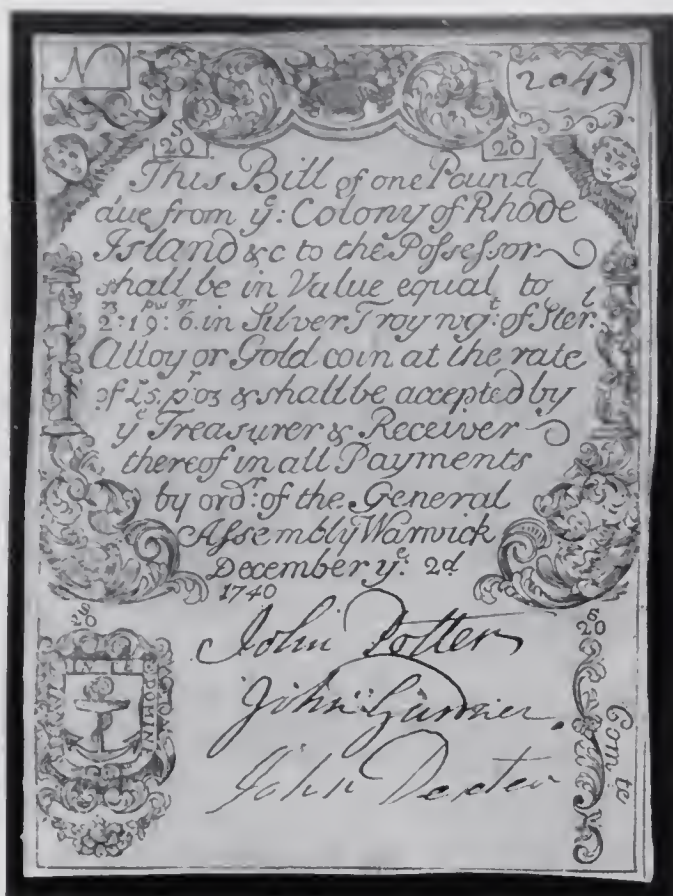 No 2043
S 20 S 20
This Bill of one Pound
due from yᵉ: Colony of Rhode
Island &c to the Poſseſsor
shall be in Value equal to
oz pw gr
2:19:6. in Silver Troy wgᵗ: of Sterˡ.
Alloy or Gold coin at the rate
pʳ oz & shall be accepted by
yᵉ Treasurer & Receiver
thereof in all Payments
by ordʳ: of the General
Aſsembly Warwick
December yᵉ: 2d
1740
S 20 S 20
John Potter
John Gardner.
John Dexter
IN TE DOMINE
Com tē